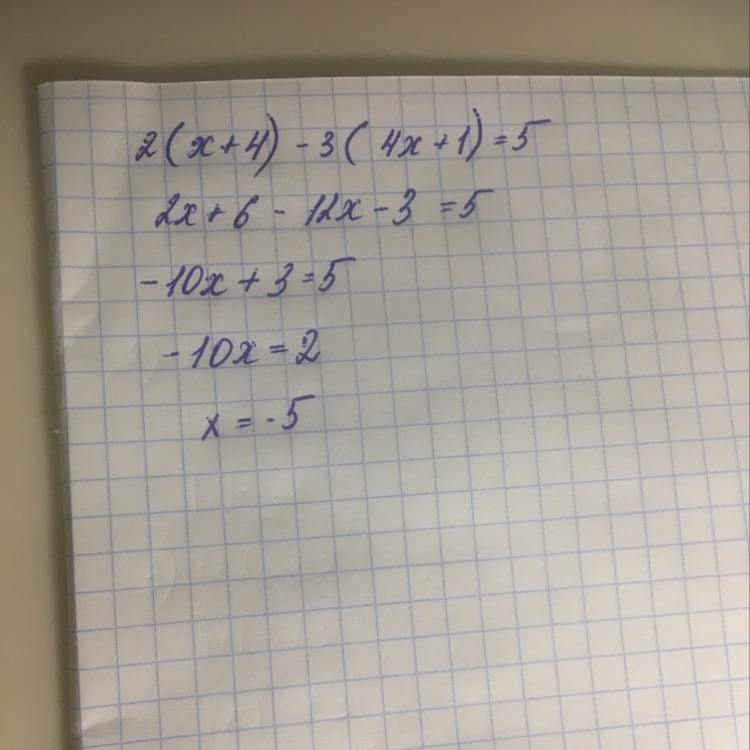 2(x+4) - 3(4x+1)=5
2x+6 - 12x-3 =5
-10x+3=5
-10x=2
x=-5